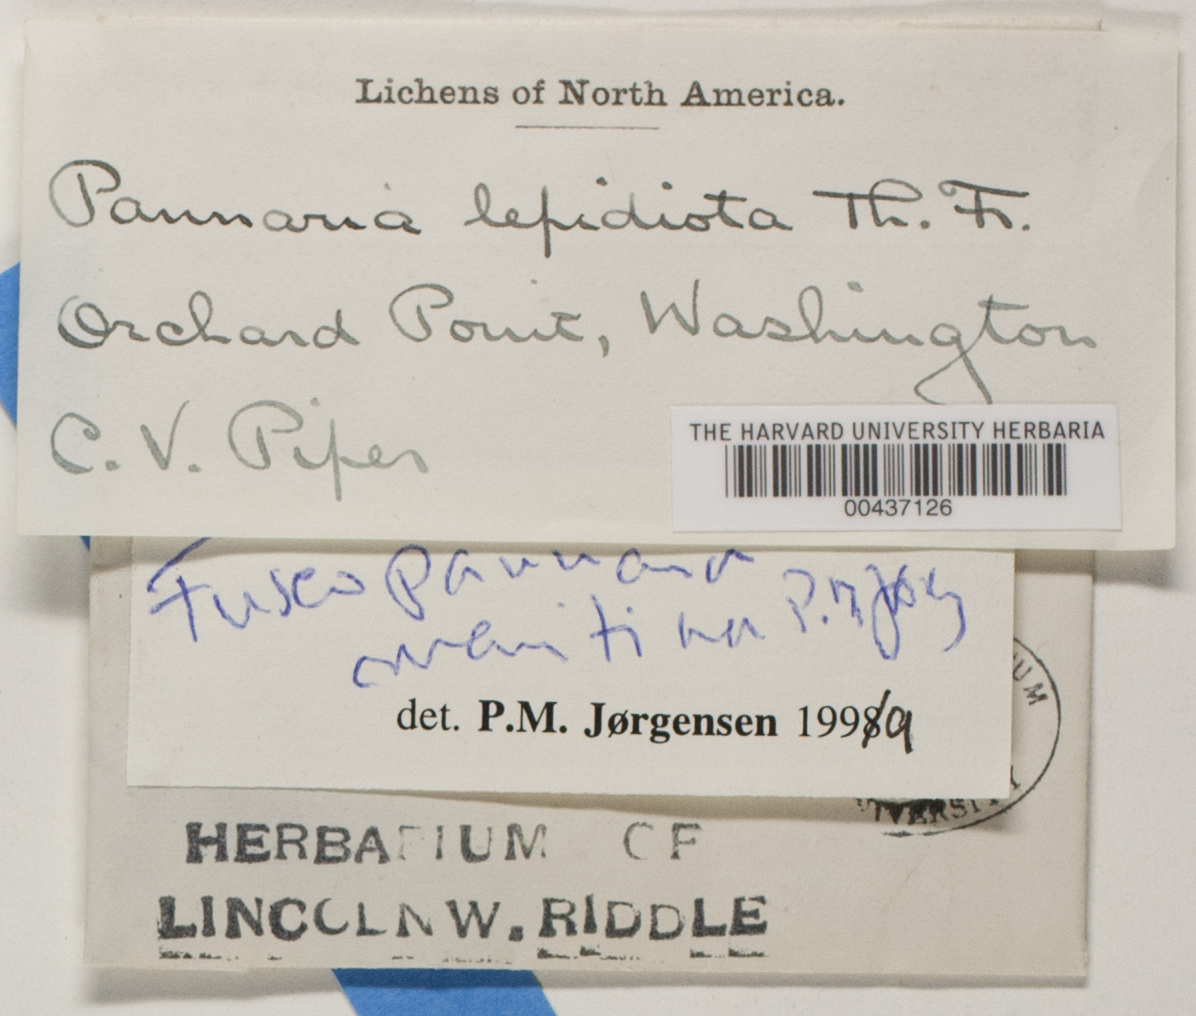 Lichens of North America.
Pannaria lepidiota Th. Fr.
Orchard Point, Washington
C. V. Piper
THE HARVARD UNIVERSITY HERBARIA
00437126
Fusco pannaria
maritima P.M. Jørg
det. P.M. Jørgensen 1998/9
HERBARIUM OF
LINCOLN W. RIDDLE